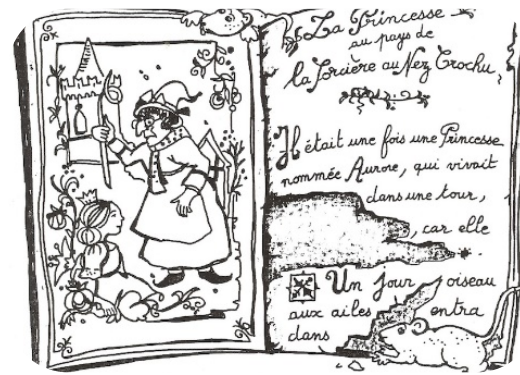 La Princesse
au pays de
la Sorcière au Nez Crochu,
Il était une fois une Princesse
nommée Aurore, qui vivait
dans une tour,
, car elle
Un jour oiseau
aux ailes entra
dans